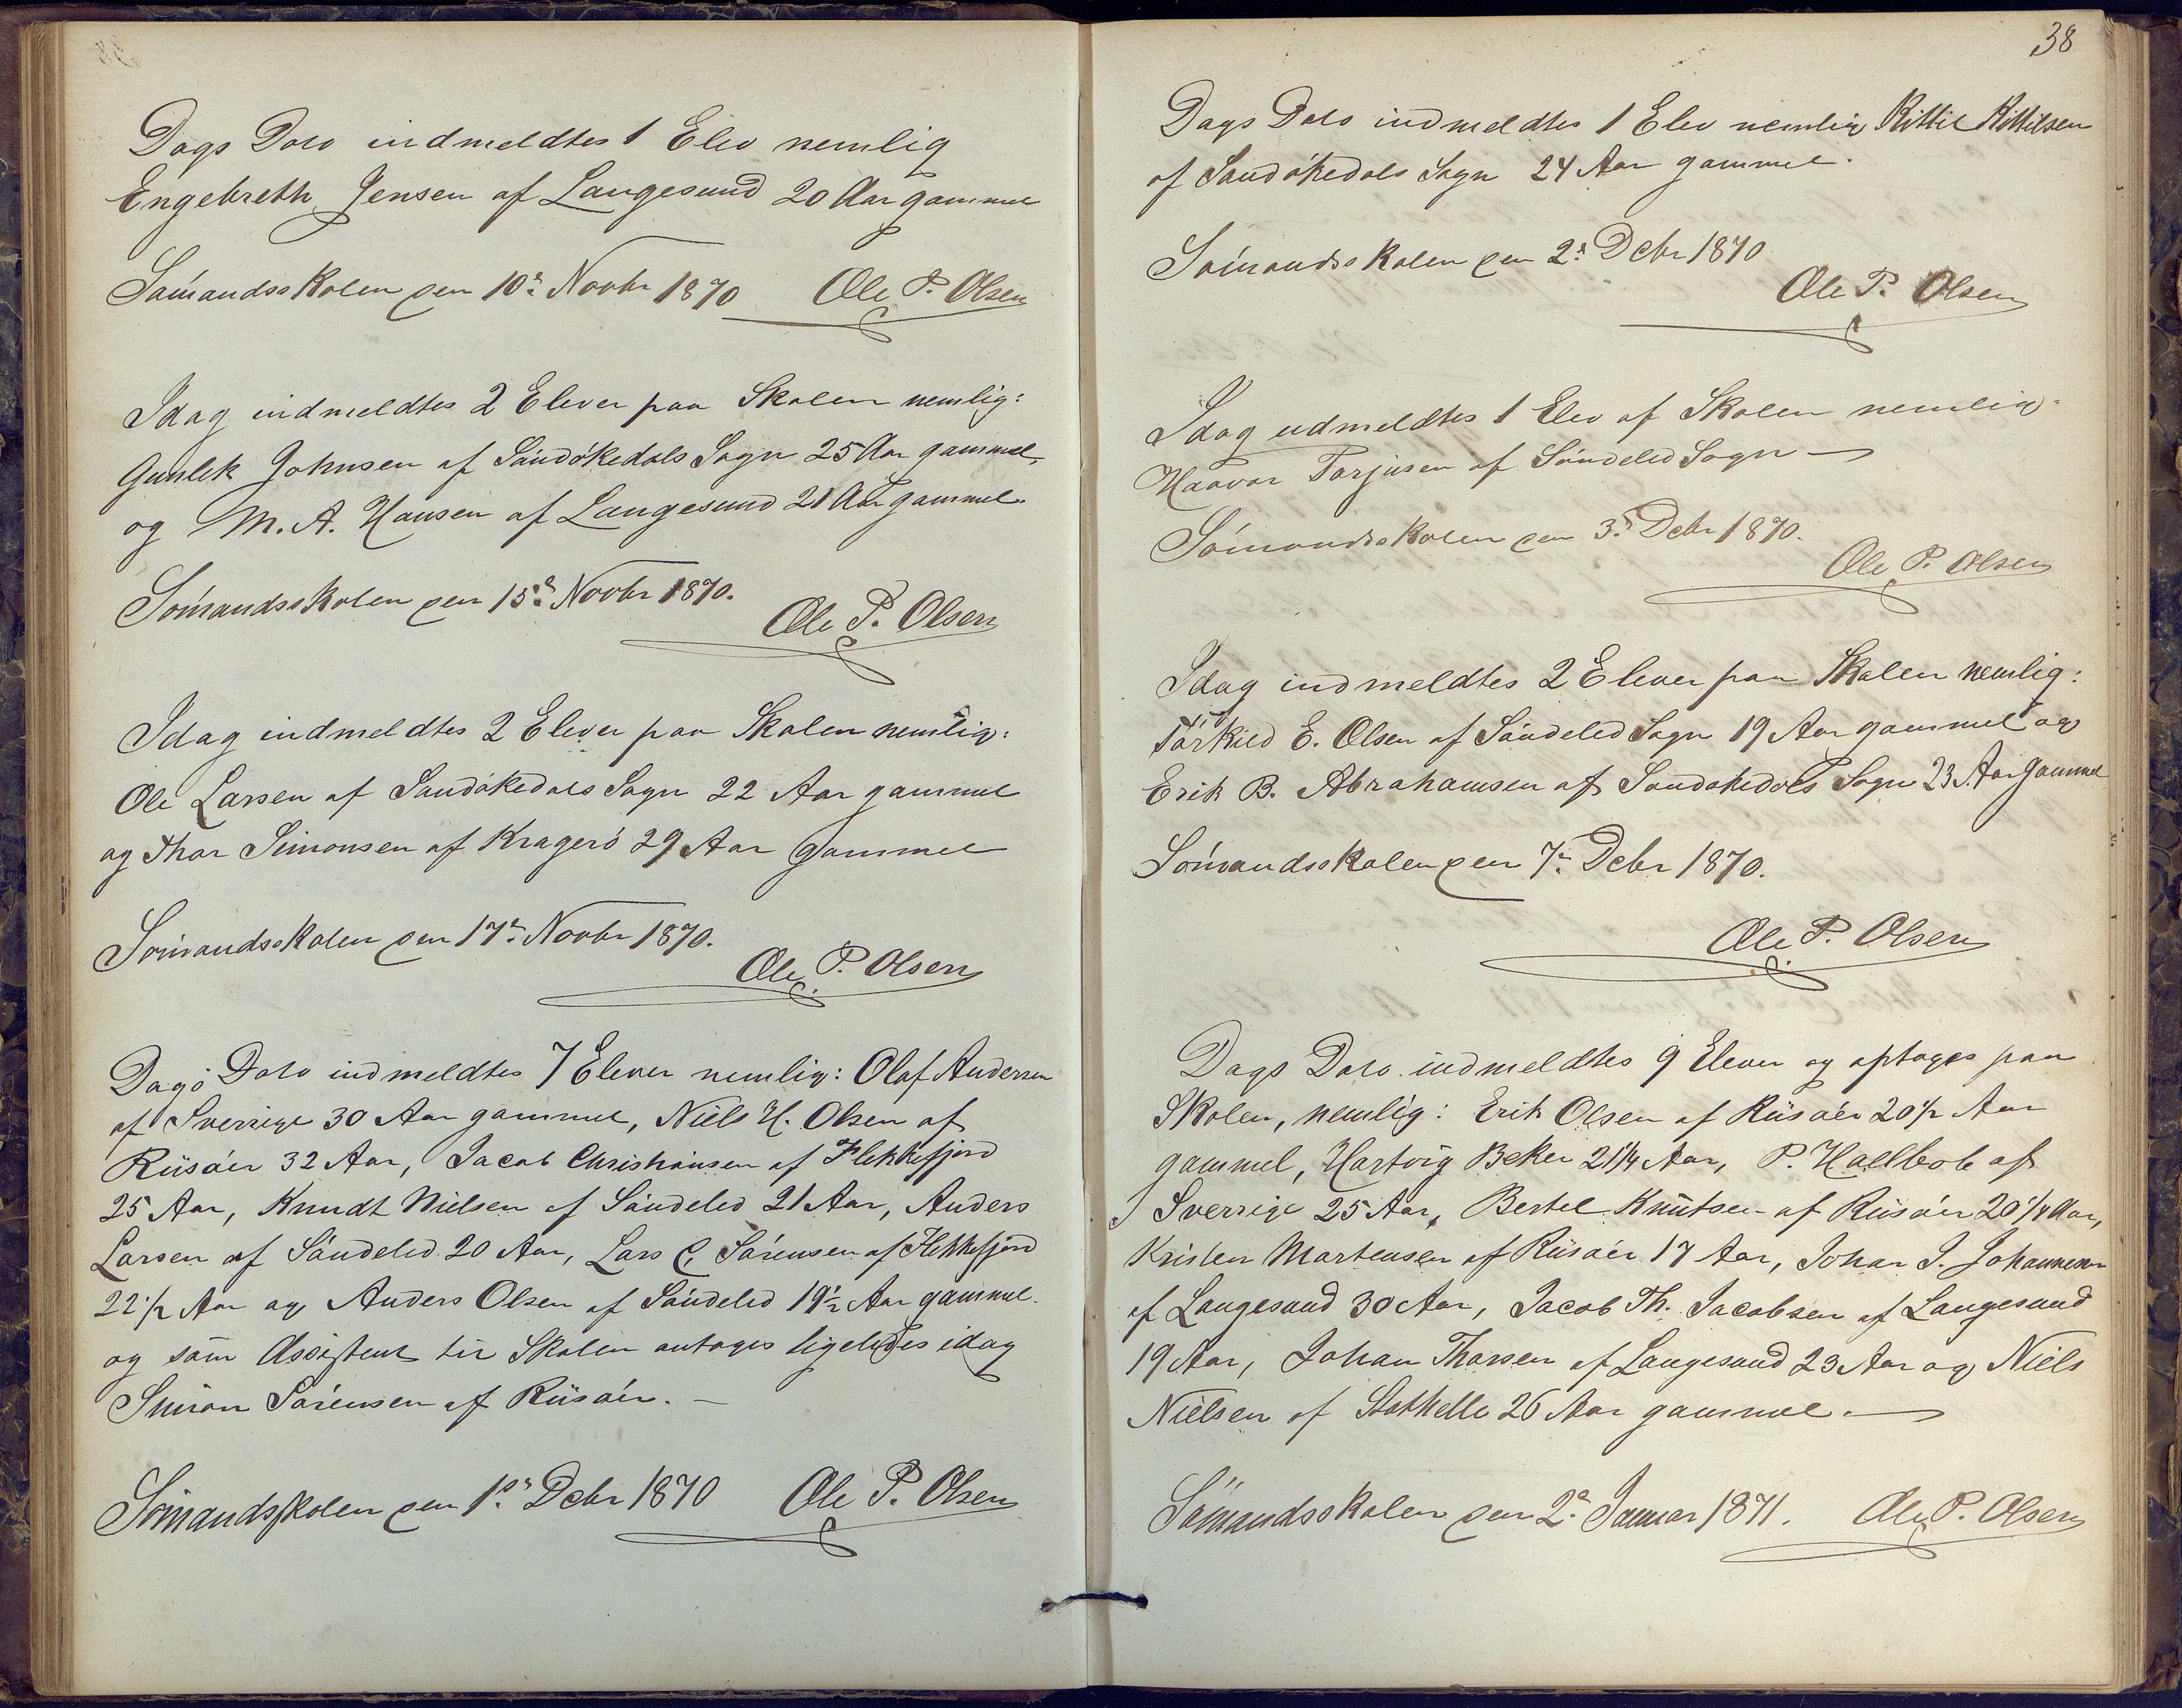 Dags Dato indmeldtes 1 Elev nemlig
Engebreth Jensen af Langesund 20 Aar gammel
Sömandsskolen den 10de Novbr 1870 Ole P. Olsen
Idag indmeldtes 2 Elever paa Skolen nemlig:
Gunlek Johnsen af Sandökedals Sogn 25 Aar gammel,
og M. A. Hansen af Langesund 21 Aar gammel
Sömandsskolen den 15de Novbr 1870.
Ole P. Olsen
Idag indmeldtes 2 Elever paa Skolen nemlig:
Ole Larsen af Sandökedals Sogn 22 Aar gammel
og Thor Simonsen af Kragerö 29 Aar gammel
Sömandsskolen den 17de Novbr 1870.
Ole P. Olsen
Dags Dato indmeldtes 7 Elever nemlig: Olaf Andersen
af Sverrige 30 Aar gammel, Niels H. Olsen af
Riisöer 32 Aar, Jacob Christiansen af Flekkefjord
25 Aar, Knudt Nielsen af Söndeled 21 Aar, Anders
Larsen af Söndeled 20 Aar, Lars C. Sörensen af Flekkefjord
22 1/2 Aar og Anders Olsen af Söndeled 19 1/2 Aar gammel.
og som Assistent til Skolen antoges ligeledes idag
Simon Sörensen af Riisöer. –
Sömandsskolen den 1ste Debr 1870 Ole P. Olsen
38
Dags Dato indmeldtes 1 Elev nemlig Kittil Kittilsen
af Sandökedals Sogn 24 Aar gammel.
Sömandsskolen den 2de Debr 1870
Ole P. Olsen
Idag udmeldtes 1 Elev af Skolen nemlig:
Haavor Torjusen af Söndeled Sogn –
Sömandsskolen den 3de Debr 1870.
Ole P. Olsen
Idag indmeldtes 2 Elever paa Skolen nemlig:
Törkild E. Olsen af Söndeled Sogn 19 Aar gammel og
Erik B. Abrahamsen af Sandökedals Sogn 23 Aar gammel
Sömandsskolen den 7de Debr 1870.
Ole P. Olsen
Dags Dato indmeldtes 9 Elever og optoges paa
Skolen, nemlig: Erik Olsen af Riisöer 20 1/2 Aar
gammel, Hartvig Beker 21 1/4 Aar, P. Hallbob af
Sverrige 25 Aar, Bertel Knutsen af Riisöer 20 1/4 Aar,
Kristen Mortensen af Riisöer 17 Aar, Johan J. Johannesen
af Langesund 30 Aar, Jacob Th. Jacobsen af Langesund
19 Aar, Johan Thorsen af Langesund 23 Aar og Niels
Nielsen af Stathelle 26 Aar gammel. –
Sömandsskolen den 2de Januar 1871. Ole P. Olsen